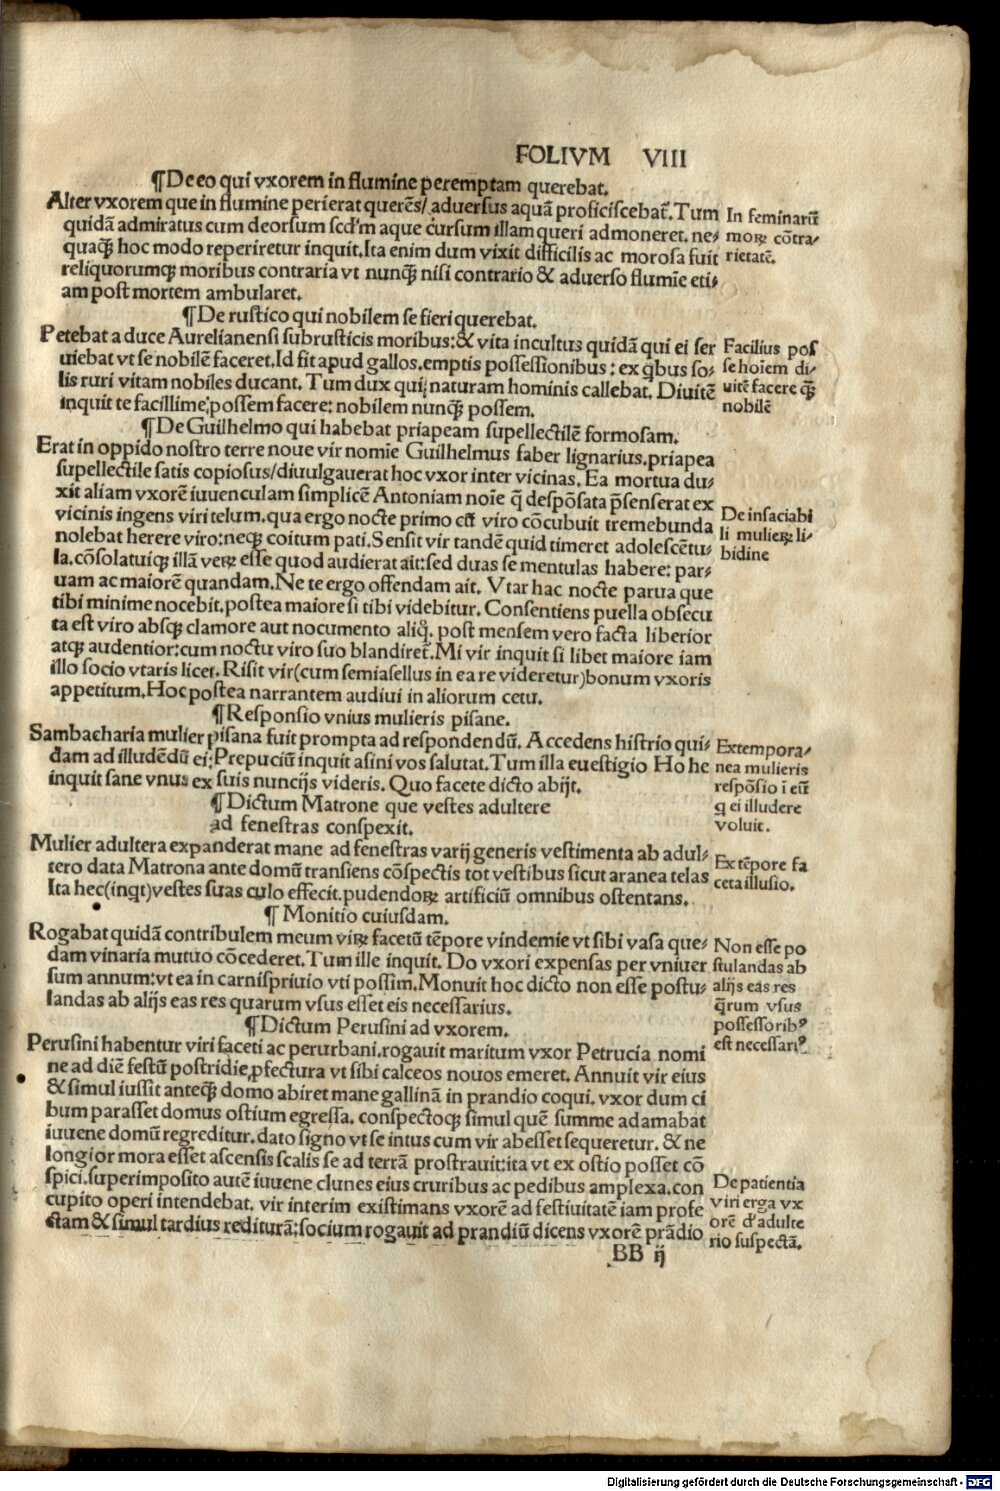 FOLIVM VIII
¶De eo qui vxorem in flumine peremptam querebat.
Alter vxorem que in flumine perierat querēs/ aduersus aquā proficiscebat᷑. Tum
quidā admiratus cum deorsum scd'm aque cursum illam queri admoneret. ne⸗
quaꝗ̄ hoc modo reperiretur inquit. Ita enim dum vixit difficilis ac morosa fuit
reliquorumqꝫ moribus contraria vt nunꝗ̄ nisi contrario & aduerso flumīe eti⸗
am post mortem ambularet.
In feminarū
moꝝ cōtra⸗
rietatē.
¶De rustico qui nobilem se fieri querebat.
Petebat a duce Aurelianensi subrusticis moribus: & vita incultus quidā qui ei ser
uiebat vt se nobilē faceret. Id fit apud gallos. emptis possessionibus: ex q̇bus so⸗
lis ruri vitam nobiles ducant. Tum dux qui naturam hominis callebat. Diuitē
inquit te facillime possem facere: nobilem nunꝗ̄ possem.
Facilius pos
se hoīem di⸗
uitē facere ꝗ̄
nobilē
¶De Guilhelmo qui habebat priapeam supellectilē formosam.
Erat in oppido nostro terre noue vir nomīe Guilhelmus faber lignarius. priapea
supellectile satis copiosus/ diuulgauerat hoc vxor inter vicinas. Ea mortua du⸗
xit aliam vxorē iuuenculam simplicē Antoniam noīe q̄ despōsata p̄senserat ex
vicinis ingens viri telum. qua ergo nocte primo cū viro cōcubuit tremebunda
nolebat herere viro: neqꝫ coitum pati. Sensit vir tandē quid timeret adolescētu⸗
la. cōsolatuqꝫ illā veꝝ esse quod audierat ait: sed duas se mentulas habere: par⸗
uam ac maiorē quandam. Ne te ergo offendam ait. Vtar hac nocte parua que
tibi minime nocebit. postea maiore si tibi videbitur. Consentiens puella obsecu
ta est viro absqꝫ clamore aut nocumento aliq̇. post mensem vero facta liberior
atqꝫ audentior: cum noctu viro suo blandiret᷑. Mi vir inquit si libet maiore iam
illo socio vtaris licet. Risit vir (cum semiasellus in ea re videretur) bonum vxoris
appetitum. Hoc postea narrantem audiui in aliorum cetu.
De insaciabi
li mulieꝝ li⸗
bidine
¶Responsio vnius mulieris pisane.
Sambacharia mulier pisana fuit prompta ad respondendū. Accedens histrio qui⸗
dam ad illudēdū ei: Prepuciū inquit asini vos salutat. Tum illa euestigio Ho he
inquit sane vnus ex suis nuncijs videris. Quo facete dicto abijt.
Extempora⸗
nea mulieris
respōsio ī eū
q ei illudere
voluit.
¶Dictum Matrone que vestes adultere
ad fenestras conspexit.
Mulier adultera expanderat mane ad fenestras varij generis vestimenta ab adul⸗
tero data Matrona ante domū transiens cōspectis tot vestibus sicut aranea telas
Ita hec (inqt) vestes suas culo effecit. pudendoꝝ artificiū omnibus ostentans.
Ex tēpore fa
ceta illusio.
¶Monitio cuiusdam.
Rogabat quidā contribulem meum viꝝ facetū tēpore vindemie vt sibi vasa que⸗
dam vinaria mutuo cōcederet. Tum ille inquit. Do vxori expensas per vniuer
sum annum: vt ea in carnispriuio vti possim. Monuit hoc dicto non esse postu⸗
landas ab alijs eas res quarum vsus esset eis necessarius.
Non esse po
stulandas ab
alijs eas res
q̄rum vsus
possessoribꝰ
est necessariꝰ
¶Dictum Perusini ad vxorem.
Perusini habentur viri faceti ac perurbani. rogauit maritum vxor Petrucia nomi
ne ad diē festū postridie ꝓfectura vt sibi calceos nouos emeret. Annuit vir eius
& simul iussit anteꝗ̄ domo abiret mane gallinā in prandio coqui. vxor dum ci
bum parasset domus ostium egressa. conspectoqꝫ simul quē summe adamabat
iuuene domū regreditur. dato signo vt se intus cum vir abesset sequeretur. & ne
longior mora esset ascensis scalis se ad terrā prostrauit: ita vt ex ostio posset cō
spici. superimposito autē iuuene clunes eius cruribus ac pedibus amplexa. con
cupito operi intendebat. vir interim existimans vxorē ad festiuitatē iam profe
ctam & simul tardius rediturā: socium rogauit ad prandiū dicens vxorē prādio
De patientia
viri erga vx
orē d' adulte
rio suspectā.
BB ij
Digitalisierung gefördert durch die Deutsche Forschungsgemeinschaft - DFG